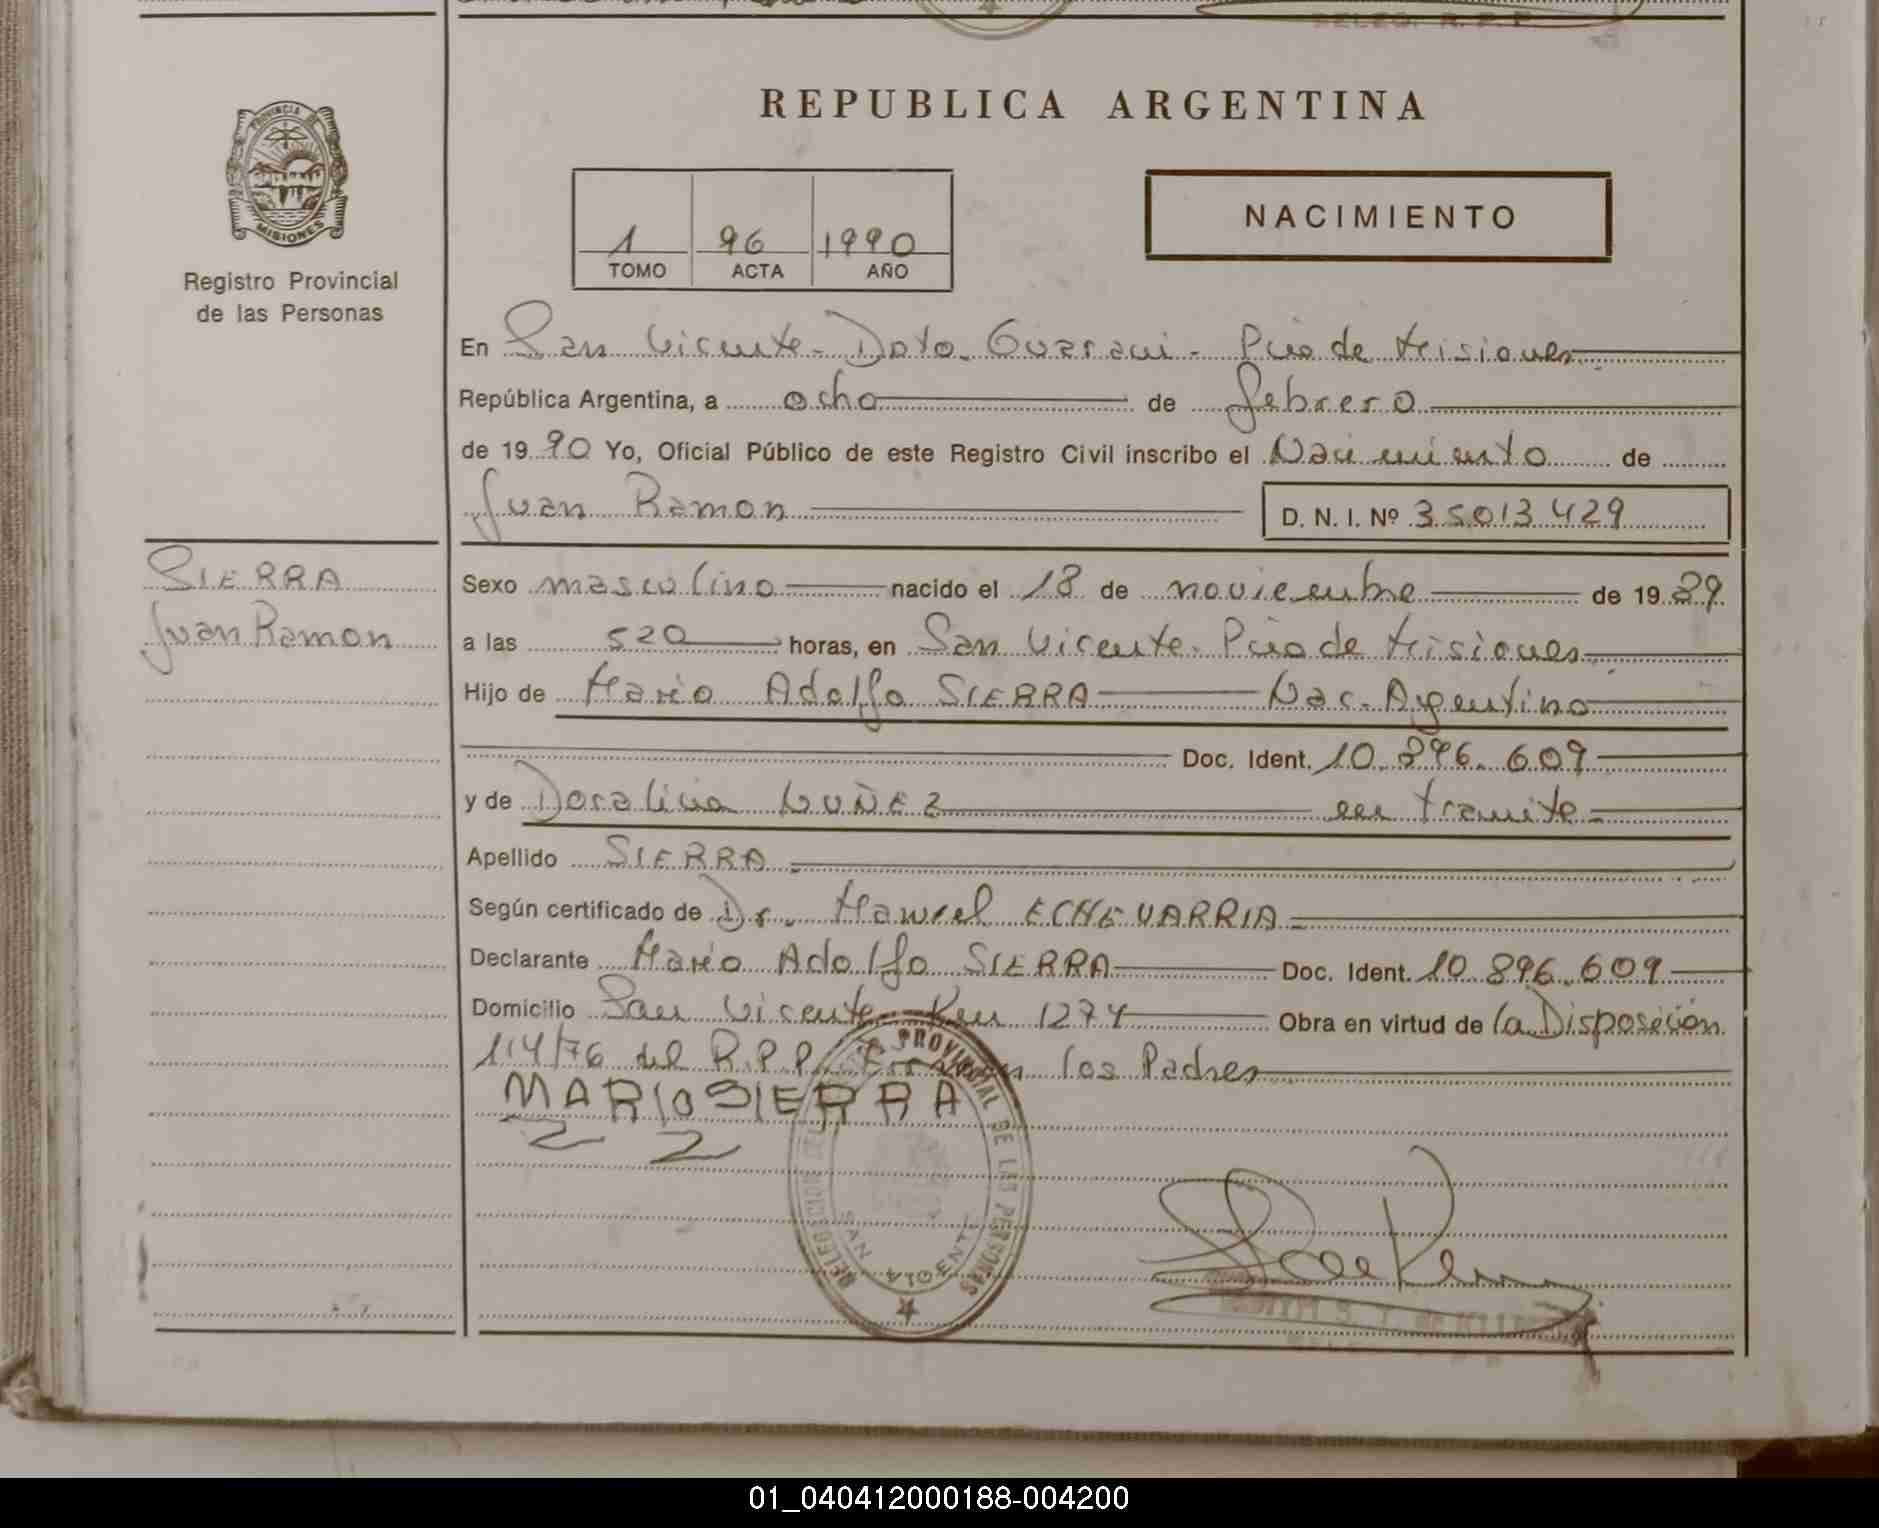 DELEG. R. P. P.
REPUBLICA ARGENTINA
PROVINCIA DE
MISIONES
Registro Provincial
de las Personas
1 96 1990
TOMO ACTA AÑO
NACIMIENTO
En San Vicente - Dpto. Guarani - Pcia de Misiones
República Argentina, a ocho de febrero
de 19 90 Yo, Oficial Público de este Registro Civil inscribo el Nacimiento de
Juan Ramon D. N. I. Nº 35013429
SIERRA
Juan Ramon
Sexo masculino nacido el 18 de noviembre de 19 89
a las 520 horas, en San Vicente - Pcia de Misiones
Hijo de Mario Adolfo SIERRA Nac. Argentino
Doc. Ident. 10.896.609
y de Doralina NUÑEZ en tramite
Apellido SIERRA
Según certificado de Dr. Manuel ECHEVARRIA
Declarante Mario Adolfo SIERRA Doc. Ident. 10.896.609
Domicilio San Vicente Km 1274 Obra en virtud de la Disposición
114/76 del R.P.P. los Padres
MARIO SIERRA
DELEGACION PROVINCIAL DE LAS PERSONAS
SAN VICENTE
01_040412000188-004200